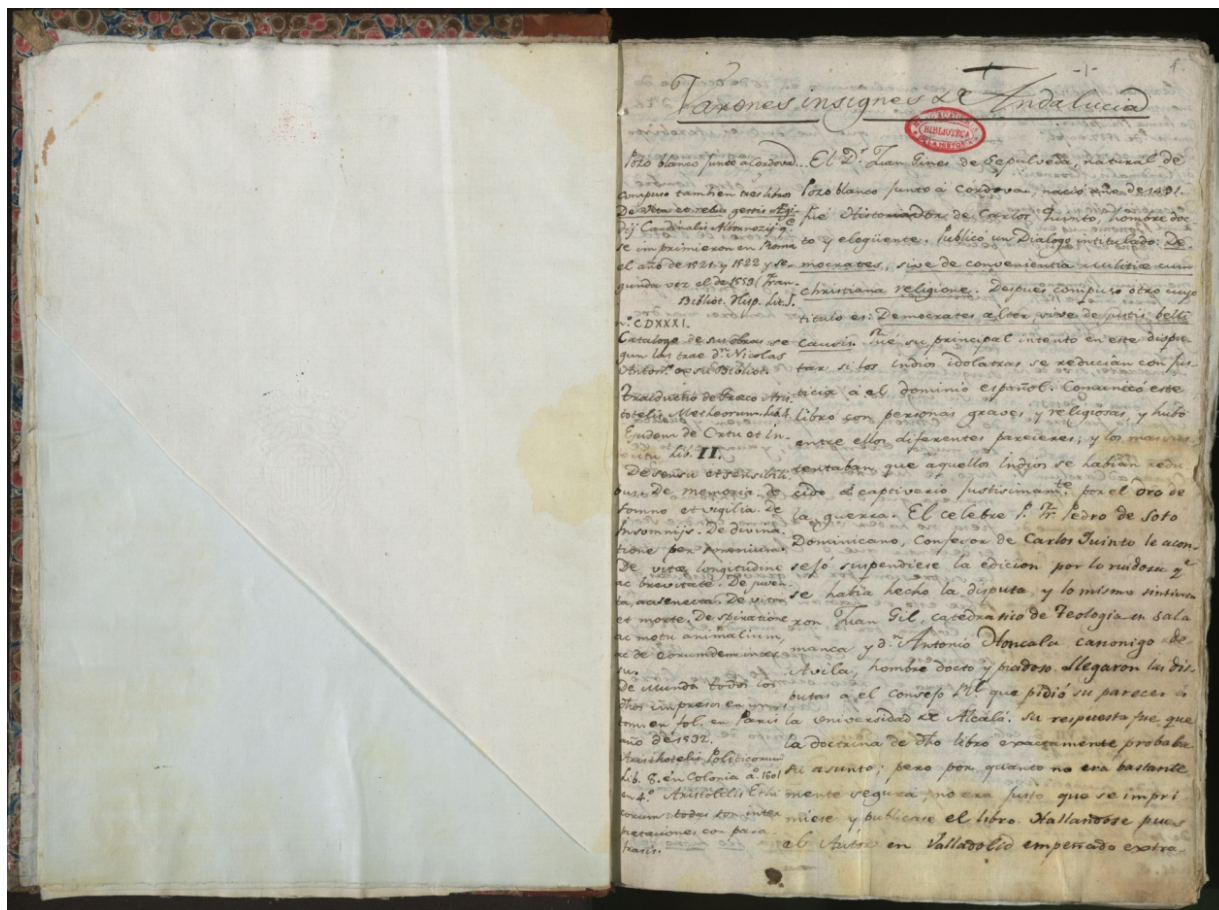 -1-
1.
Varones insignes de Andalucia
BIBLIOTECA
Pozo blanco junto a Cordova
compuso tambien tres libros
De vita et rebus gestis Egi-
dij Cardinalis Albornozij q.e
se imprimieron en Roma
el año de 1521. y 1522 y se-
gunda vez el de 1559
Bibliot. Hisp. Lit. J.
n.º CDXXXI.
Catalogo de sus obras se
gun las trae d.n Nicolas
Anton.º de su Bibliot.
Traductio de Graeco Aris
totelis Metheororum. Lib. 4
de Ortu et In-
teritu Lib. II.
De sensu et sensibili
bus. De memoria. de
somno et vigilia. De
Insomnijs. De divina
tione per somnium
De vitæ longitudine
ac brevitate. De juven
ta, ac senecta. De vita
et morte. De spiratione
ac motu animalium,
ac de eorumdem inces
su.
De Mundo todos los
dhos impresos en un
tom. en fol. en Paris
año de 1532.
Aristhotelis Politicorum
Lib. 8. en Colonia a.º 1601
en 4.º Aristotelis Ethi
corum: todos son inter
pretaciones con para-
frasis.
El D.r Juan Gines de Sepulveda, natural de
Pozo blanco junto á Córdova, nació de 1491.
fué Historiador de Carlos Quinto, hombre doc
to y eloqüente. Publicó un Dialogo intitulado: De-
mocrates, sive de convenientia militiæ cum
christiana religione. Despues compuso otro cuyo
titulo es: Democrates alter sive de justis belli
causis. Fue su principal intento en este dispu
tar si los indios idolatras se reducian con jus-
ticia á el dominio español. Comunicó este
libro con personas graves, y religiosas, y hubo
entre ellos diferentes pareceres; y los mas
tentaban que aquellos Indios se habian redu
cido á captiverio justisimam.te por el dro de
la guerra. El celebre P. Fr. Pedro de Soto
Dominicano, Confesor de Carlos Quinto le acon-
sejó suspendiese la edicion por lo ruidosa q.e
se habia hecho la disputa, y lo mismo sintieron
ron Juan Gil, catedratico de Teologia en Sala
manca y d.n Antonio Honcala canonigo de
Avila, hombre docto y piadoso. Llegaron las dis-
putas a el Consejo R.l que pidió su parecer á
la Universidad de Alcalá. Su respuesta fue que
la doctrina de dho libro exactamente probaba
su asunto; pero por quanto no era bastante
mente segura, no era justo que se impri
miese y publicase el libro. Hallandose pues
el Autor en Valladolid empeñado extra-